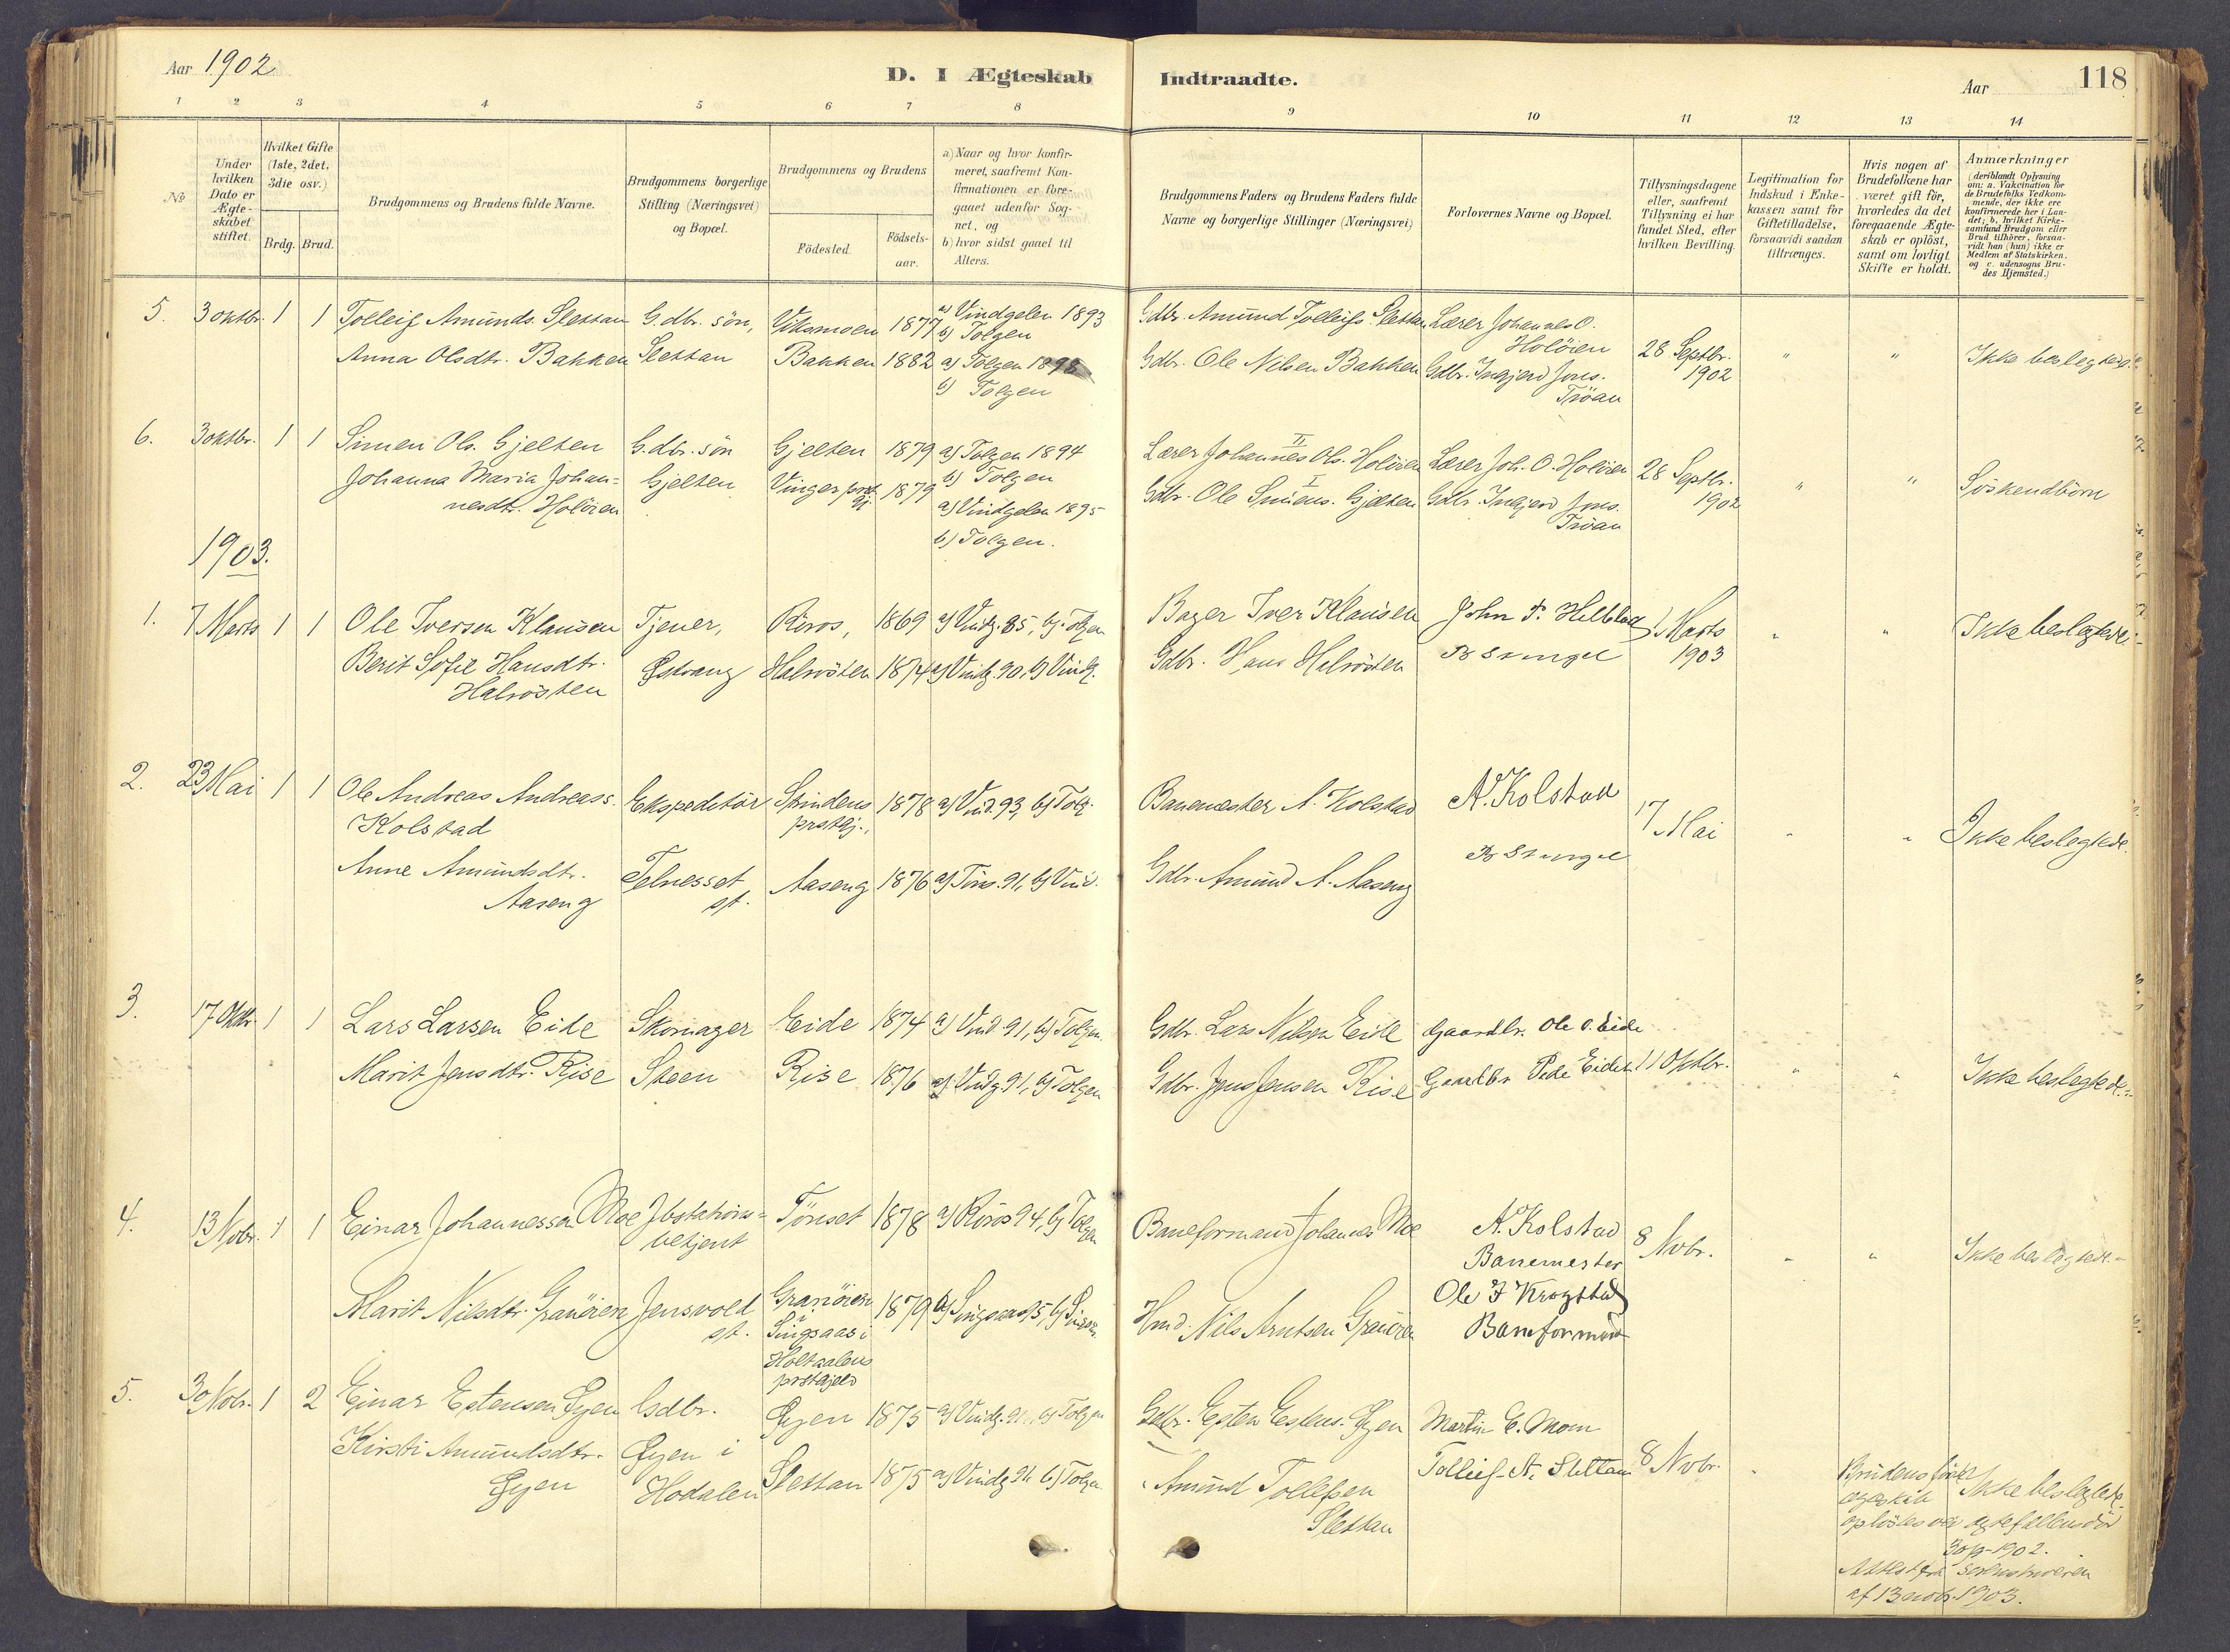 Aar 1902
D. I Ægteskab
Indtraadte.
Aar
118
1 2 3 4 5 6 7 8 9 10 11 12 13 14
№
Under hvilken Dato er Ægteskabet stiftet.
Hvilket Gifte (1ste, 2det, 3die osv.)
Brdg. Brud.
Brudgommens og Brudens fulde Navne.
Brudgommens borgerlige Stilling (Næringsvei) og Bopæl.
Brudgommens og Brudens
Födested.
Födselsaar.
a) Naar og hvor konfirmeret, saafremt Konfirmationen er foregaaet udenfor Sognet, og
b) hvor sidst gaaet til Alters.
Brudgommens Faders og Brudens Faders fulde Navne og borgerlige Stillinger (Næringsvei)
Forlovernes Navne og Bopæl.
Tillysningsdagene eller, saafremt Tillysning ei har fundet Sted, efter hvilken Bevilling.
Legitimation for Indskud i Enkekassen samt for Giftetilladelse, forsaavidt saadan tiltrænges.
Hvis nogen af Brudefolkene har været gift för, hvorledes da det foregaaende Ægteskab er oplöst, samt om lovligt Skifte er holdt.
Anmærkninger (deriblandt Oplysning om: a. Vakcination for de Brudefolks Vedkommende, der ikke ere konfirmerede her i Landet; b. hvilket Kirkesamfund Brudgom eller Brud tilhörer, forsaavidt han (hun) ikke er Medlem af Statskirken, og c. udensogns Brudes Hjemsted.)
5. 3 oktbr. 1 1 Tolleif Amunds. Slettan G.dbr. sön, Vikamoen 1877 a) Vindgelen 1893 b) Tolgen
Gdbr. Amund Tolleifs. Slettan Lærer Johannes O. Holöien
Anna Olsdtr. Bakken Slettan Bakken 1882 a) Tolgen 1898 b) Tolgen
Gdbr. Ole Nilsen Bakken Gdbr. Ingjerd Jons. Tröan 28 Septbr. 1902 " " Ikke beslegtede.
6. 3 oktbr. 1 1 Simen Ols. Gjelten G.dbr. sön Gjelten 1879 a) Tolgen 1894 b) Tolgen
Lærer Johannes Ols. Holöien II Lærer Joh. O. Holöien
Johanna Maria Johannesdtr. Holöien Gjelten Vinger prstgj. 1879 a) Vindgelen 1895 b) Tolgen.
Gdbr. Ole Simens. Gjelten I Gdbr. Ingjerd Jons. Tröan 28 Septbr. 1902 " " Söskendbörn
1903.
1. 7 Marts 1 1 Ole Iversen Klausen Tjener, Röros, 1869 a) Vindg. 85, b) Tolgen
Bager Iver Klausen
Berit Sofie Hansdtr. Halvösten Östvang Halvösten 1874 a) Vindg. 90, b) Vindg.
Gdbr. Hans Halvösten 1 Marts 1903 " " Ikke beslegtede.
2. 23 Mai 1 1 Ole Andreas Andreass. Kolstad Ekspeditör prstgj. 1878 a) Vind. 93, b) Tolg.
Banemester A. Kolstad A. Kolstad
Anne Amundsdtr. Aaseng Telnesset st. Aaseng 1876 a) Töns. 91, b) Vind.
Gdbr. Amund A. Aaseng 17 Mai " " Ikke beslegtede.
3. 17 Oktbr. 1 1 Lars Larsen Eide Skomager Eide 1874 a) Vind. 91, b) Tolgen.
Gdbr. Lars Nilsen Eide Gaardbr. Ole O. Eide
Marit Jensdtr. Rise Steen Rise 1876 a) Vindg. 91, b) Tolgen
Gdbr. Jens Jensen Rise Gaardbr Peder Eidet 11 Oktbr. " " Ikke beslegtede.
4. 13 Novbr. 1 1 Einar Johannessen Moe Jbstationsbetjent Tönset 1878 a) Röros 94, b) Tolgen
Baneformand Johannes Moe A. Kolstad Banemester
Marit Nilsdtr. Granöien Jensvold st. Granöien i Singsaas i Holtaalens prstgjeld 1879 a) Singsaas 95, b) Singsaas
Hmd. Nils Arntsen Granöien Ole J Krogstad Baneformand 8 Novbr. " " Ikke beslegtede.
5. 30 Novbr. 1 2 Einar Estensen Gdbr. 1875 a) Vindg. 91, b) Tolgen
Gdbr. Esten Estens. Martin E. Moen
Kirsti Amundsdtr. i Hodalen Slettan 1875 a) Vindg. 91 b) Tolgen
Amund Tollefsen Slettan Tollief A. Slettan 8 Novbr. "
Brudens förste egteskab oplöstes ved egtefellens död 30/9-1902.
Attest fra sorenskriveren af 13 novbr. 1903.
Ikke beslegtede.